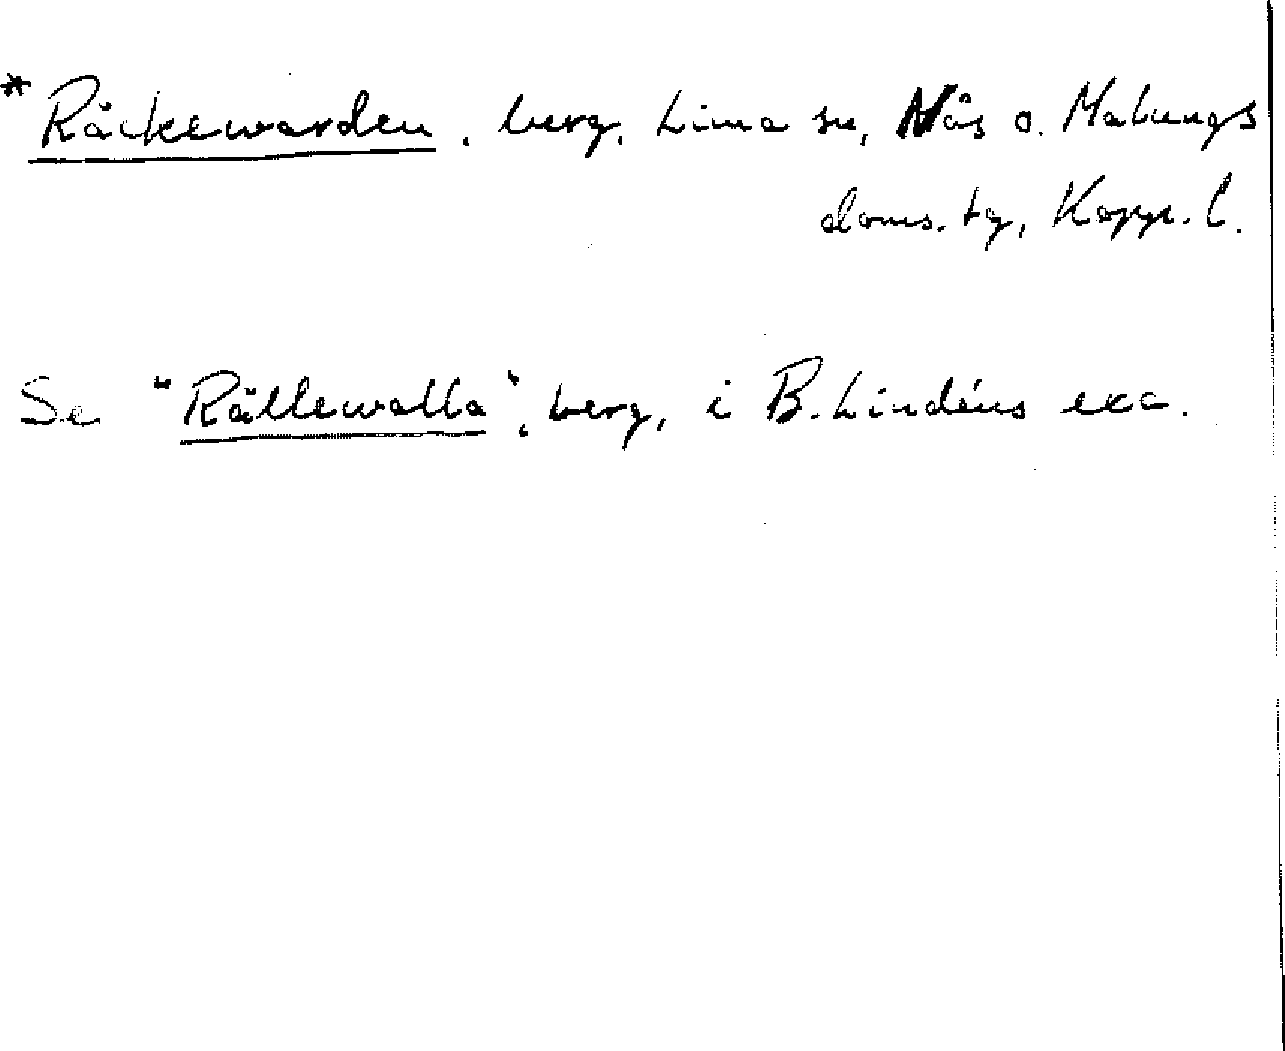 * Råckewarden, berg, Lima sn, Nås o. Malungs
doms. tg, Kopp. l.
Se "Rällewalla", berg, i B. Lindéns exc.